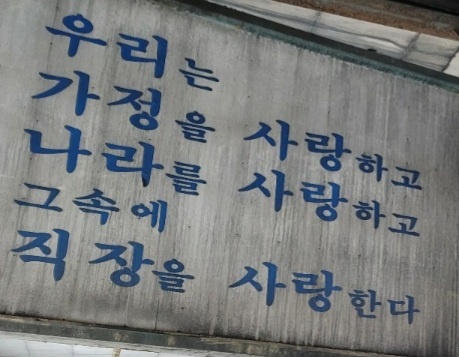 우리는
가정을 사랑하고
나라를 사랑하고
그속에
직장을 사랑한다